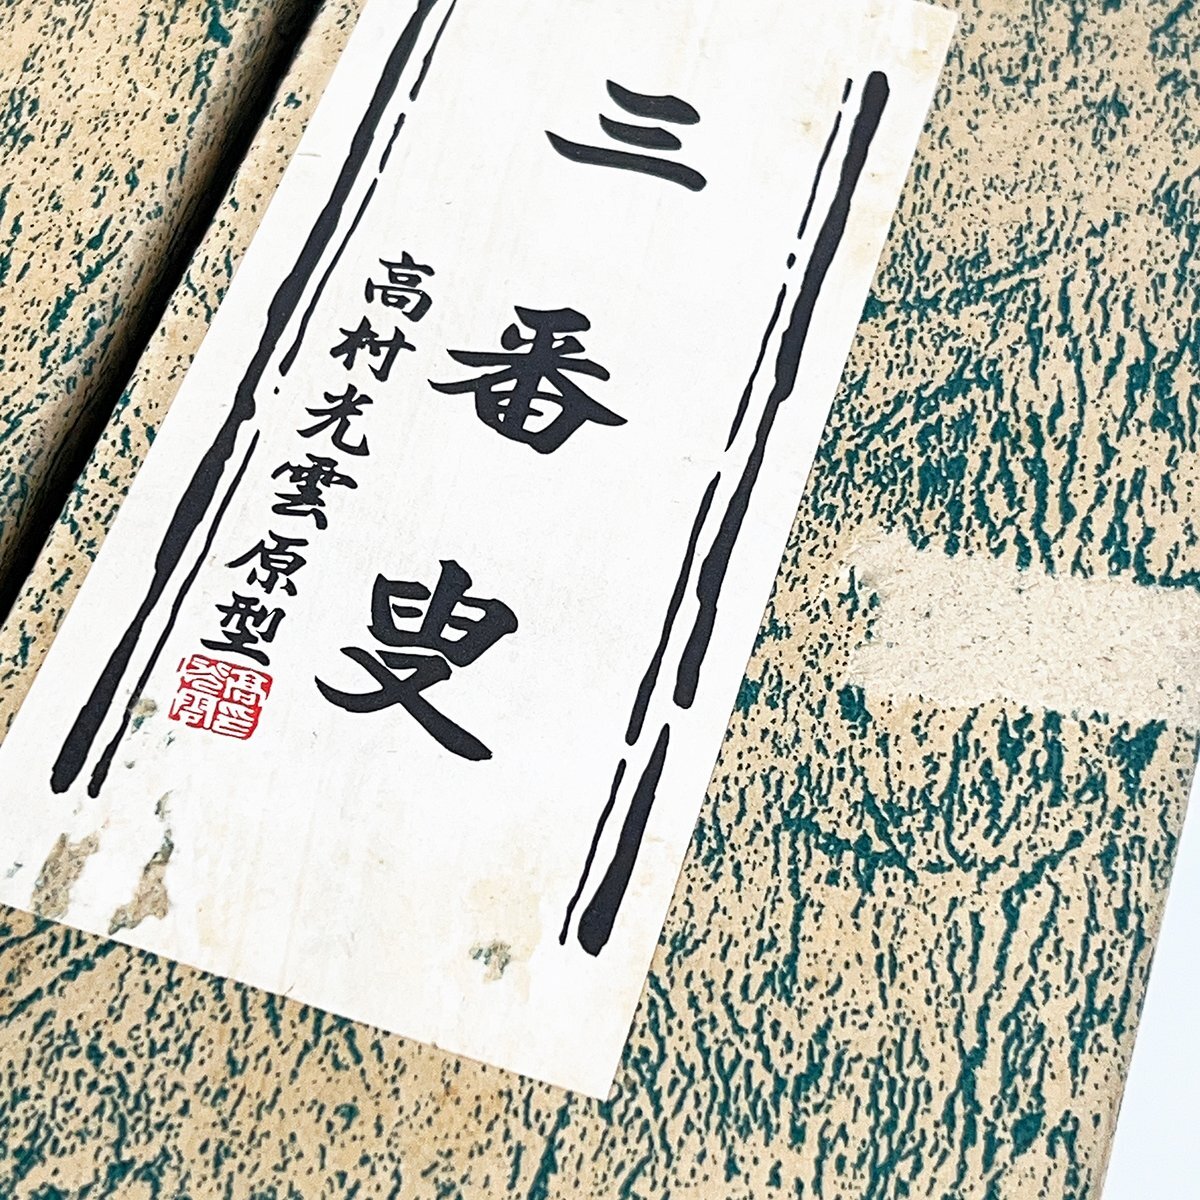 三番叟
高村光雲原型